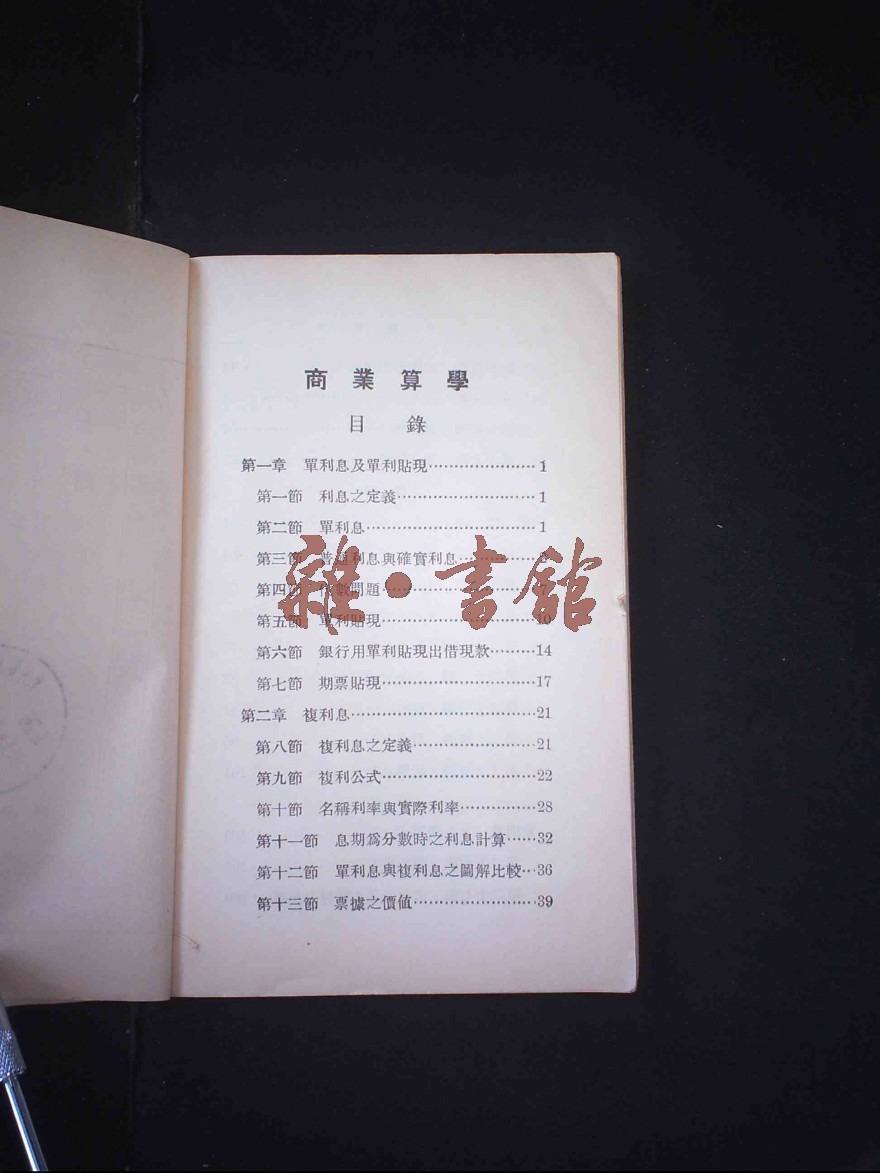 商業算學
目錄
第一章 單利息及單利貼現……………………1
第一節 利息之定義……………………1
第二節 單利息……………………1
第三節 普通利息與確實利息……………
第四節 數問題……………7
第五節 單利貼現……………10
第六節 銀行用單利貼現出借現款………14
第七節 期票貼現……………………17
第二章 複利息……………………21
第八節 複利息之定義……………………21
第九節 複利公式……………………22
第十節 名稱利率與實際利率……………28
第十一節 息期爲分數時之利息計算……32
第十二節 單利息與複利息之圖解比較…36
第十三節 票據之價值……………………39
雜·書館